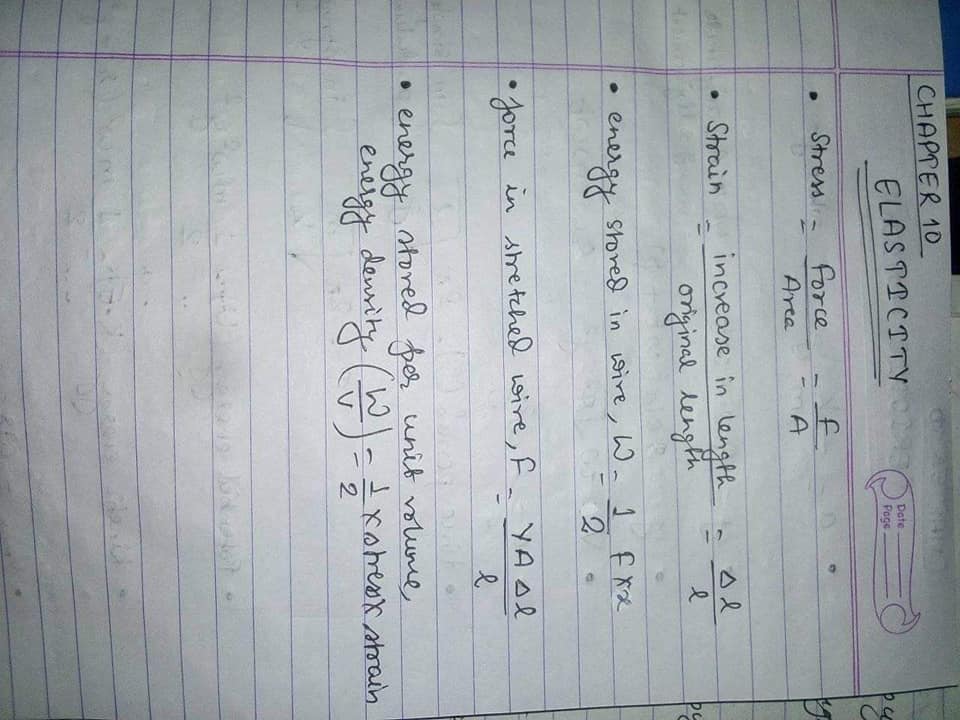 CHAPTER 10
ELASTICITY
Date
Page
• Stress = Force / Area = F / A
• Strain = increase in length / original length = Δl / l
• energy stored in wire, W = 1/2 F x x
• force in stretched wire, F = YAΔl / l
• energy stored per unit volume,
energy density (W/V) = 1/2 x stress x strain